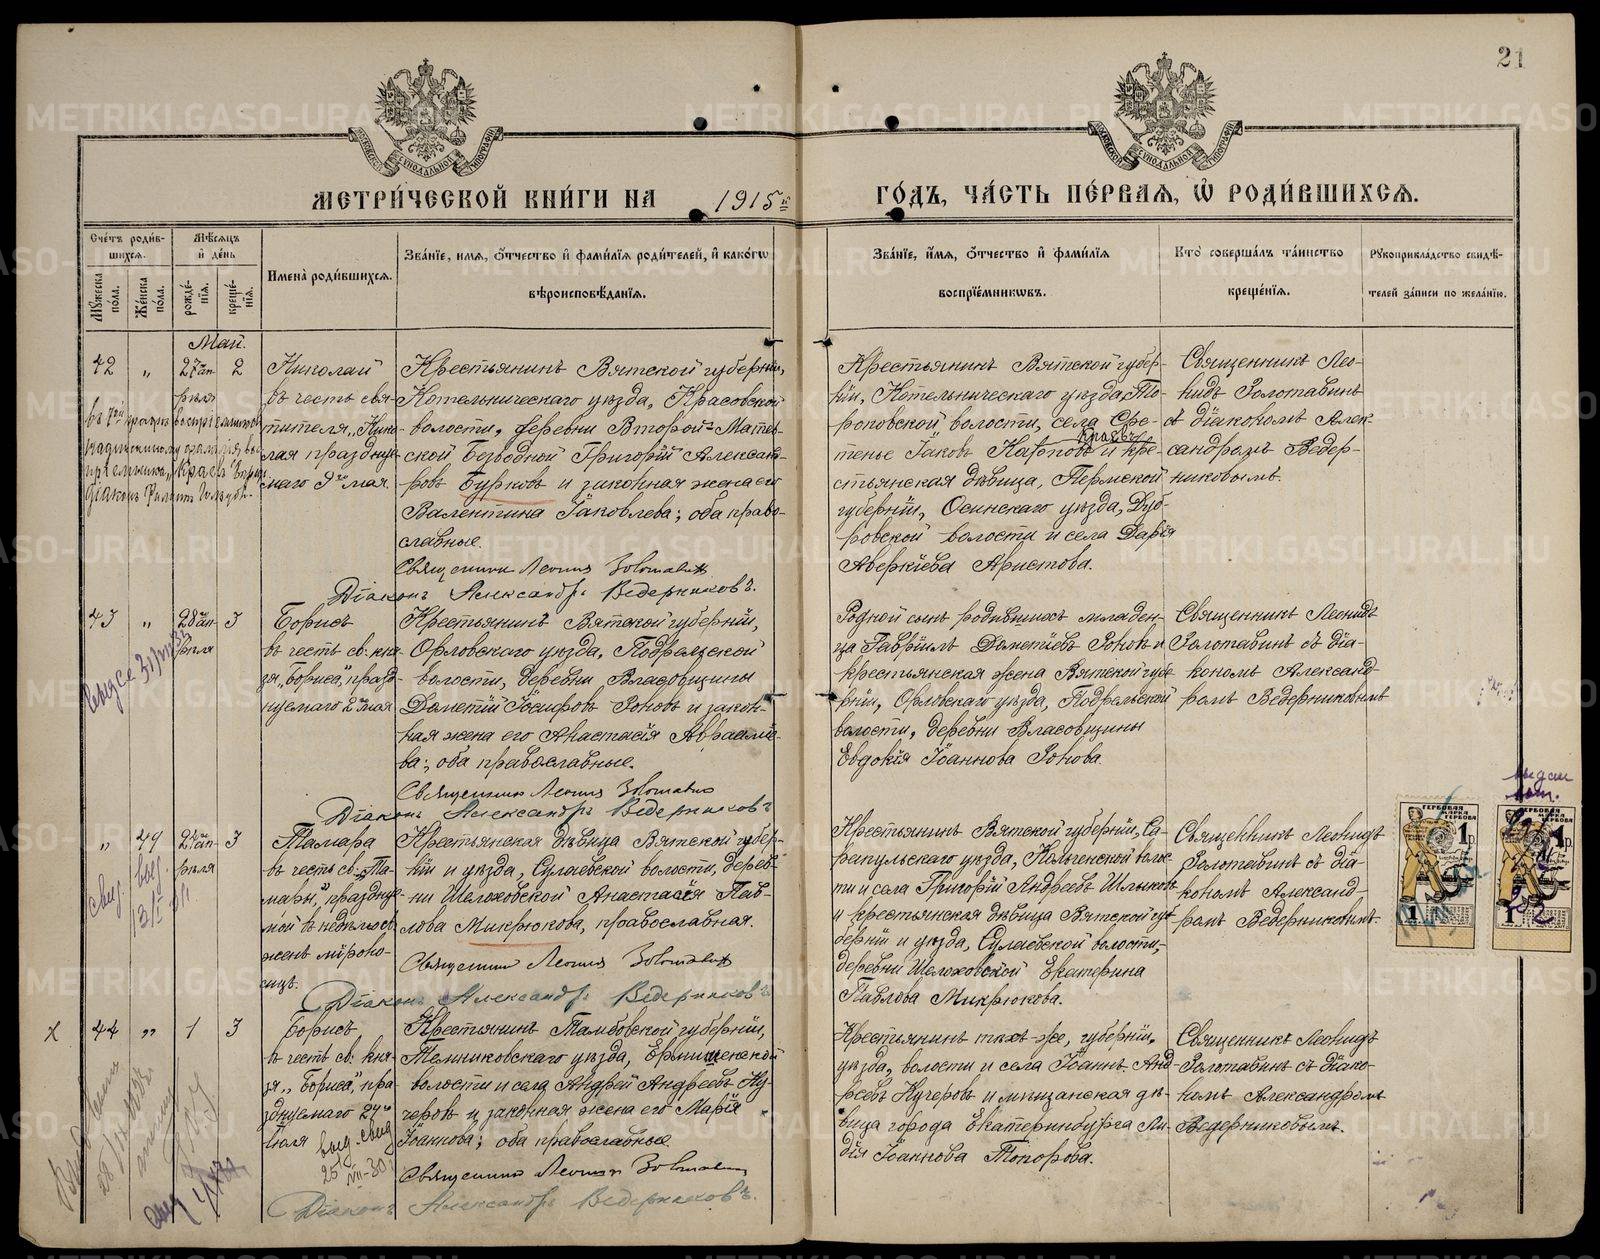 21
МЕТРИ́ЧЕСКОЙ КНИ́ГИ НА 1915й
ГО́ДЪ, ЧА́СТЬ ПЕ́РВАЯ, Ѡ РОДИ́ВШИХСЯ.
Сче́тъ роди́вшихся.
Му́жеска по́ла.
Же́нска по́ла.
Мѣ́сяцъ и̂ де́нь
рожде́нїя.
креще́нїя.
И́мена̀ роди́вшихся.
Зва́нїе, и́мя, о́тчество и̂ фами́лїя роди́телей, и̂ како́гѡ
вѣроисповѣ́данїя.
Зва́нїе, и́мя, о́тчество и̂ фами́лїя
воспрїе́мниковъ.
Кто̀ соверша́лъ та́инство
креще́нїя.
Рꙋкоприкла́дство свидѣ́-
телей за́писи по жела́нїю.
Май.
42 „ 27 ап-
рѣля 2
Николай
въ честь свя-
тителя „Нико-
лая праздную-
емаго 9го мая.
Крестьянинъ Вятской губерніи,
Котельническаго уѣзда, Красовской
волости, деревни Второй-Матве-
ской Безводной Григорій Александ-
ровъ Бурковъ и законная жена его
Валентина Іаковлева; оба право-
славные.
Священникъ Леонидъ Золотавинъ
Діаконъ Александръ Ведерниковъ.
Крестьянинъ Вятской губер-
ніи, Котельническаго уѣзда, То-
роповской волости, села Сре-
тенье Іаковъ Карповъ и кре-
Краевъ
стьянская дѣвица, Пермской
губерніи, Осинскаго уѣзда, Дуб-
ровской волости и села Дарія
Аверкіева Аристова.
Священникъ Лео-
нидъ Золотавинъ
съ діакономъ Алек-
сандромъ Ведер-
никовымъ.
43 „ 28 ап-
рѣля 3
Борисъ
въ честь св. кня-
зя „Бориса", празд-
нуемаго 2 мая
Крестьянинъ Вятской губерніи,
Орловскаго уѣзда, Подрельской
волости, деревни Власовщины
Дометій Іосифовъ Зоновъ и закон-
ная жена его Анастасія Авраамие-
ва; оба православные.
Священникъ Леонидъ Золотавинъ
Діаконъ Александръ Ведерниковъ
Родной сынъ родившагося младен-
ца Гавріилъ Дометіевъ Зоновъ и
крестьянская жена Вятской губе-
рніи, Орловскаго уѣзда, Подрельской
волости, деревни Власовщины
Евдокія Іоаннова Зонова.
Священникъ Леонидъ
Золотавинъ съ діа-
кономъ Александ-
ромъ Ведерниковымъ
„ 49 29 ап-
рѣля 3
Тамара
въ честь св. „Та-
мары", праздну-
мой въ недѣлю св.
женъ мѵроно-
сицъ.
Крестьянская дѣвица Вятской губер-
ніи и уѣзда, Сулаевской волости, дерев-
ни Шелоховской Анастасія Пав-
лова Микрюкова, православная.
Священникъ Леонидъ Золотавинъ
Діаконъ Александръ Ведерниковъ
Крестьянинъ Вятской губерніи, Са-
рапульскаго уѣзда, волос-
ти и села Григорій Андреевъ Шлыковъ
и крестьянская дѣвица Вятской гу-
берніи и уѣзда, Сулаевской волости,
деревни Шелоховской Екатерина
Павлова Микрюкова.
Священникъ Леонидъ
Золотавинъ съ діа-
кономъ Александ-
ромъ Ведерниковымъ.
ГЕРБОВАЯ МАРКА 1 р.
ГЕРБОВАЯ МАРКА 1 р.
х 44 „ 1 3
Борисъ
въ честь св. кня-
зя „Бориса", пра-
зднуемаго 24го
іюля
Крестьянинъ Тамбовской губерніи,
Темниковскаго уѣзда, Ермишенской
волости и села Андрей Андреевъ Ку-
черовъ и законная жена его Марія
Іоаннова; оба православные.
Священникъ Леонидъ Золотавинъ
Діаконъ Александръ Ведерниковъ.
Крестьянинъ той-же, губерніи,
уѣзда, волости и села Іоаннъ Анд-
реевъ Кучеровъ и мѣщанская дѣ-
вица города Екатеринбурга Ли-
дія Іоаннова Топорова.
Священникъ Леонидъ
Золотавинъ съ діако-
номъ Александромъ
Ведерниковымъ.
METRIKI.GASO-URAL.RU